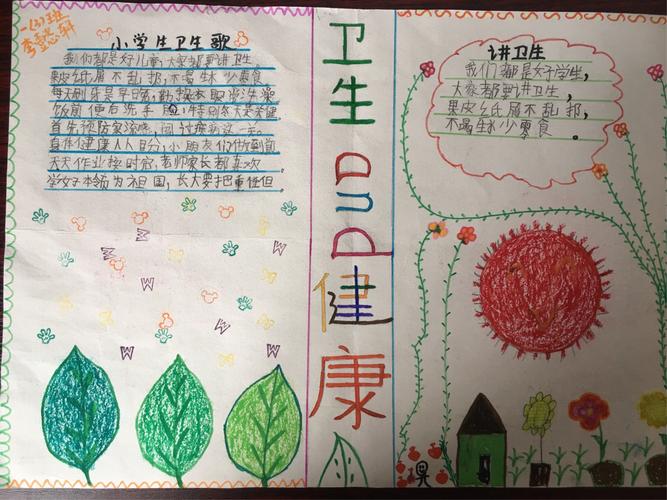 一(3)班
小学生卫生歌
我们都是好儿童,大家都要讲卫生。
果皮纸屑不乱扔,不喝生水少零食
每天刷牙是平日常,勤换衣服常洗澡
饭前便后洗手
首先预防
身体健康人人自分,小朋友们做到首
天天作业按时完,老师家长都喜欢
学好本领为祖国,长大要把重任担
卫生
and
健康
讲卫生
我们都是好学生,
大家都要讲卫生,
果皮纸屑不乱扔,
不喝生水少零食。